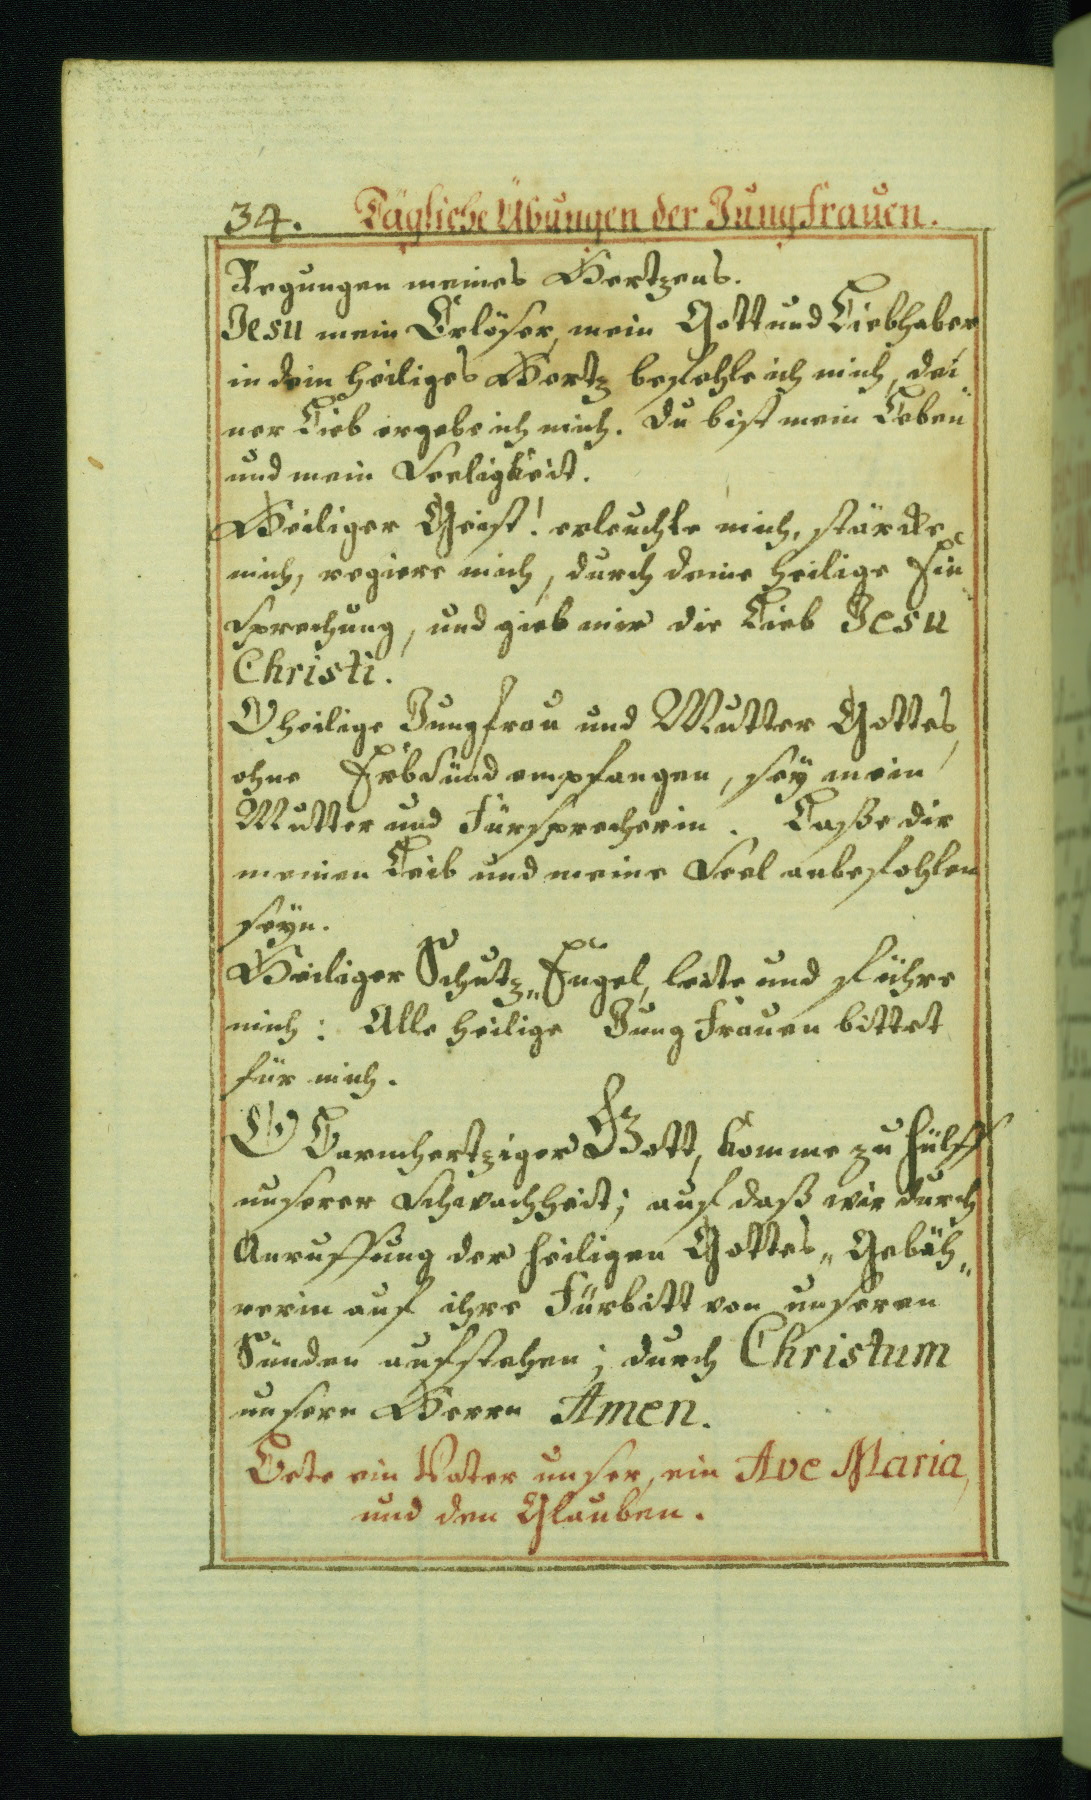 34. Tägliche Übungen der Jungfrauen.
Regungen meines Hertzens.
Jesu mein Erlöser, mein Gott und Liebhaber
in dein heiliges Hertz befehle ich mich, dei„
ner Lieb ergebe ich mich. Du bist mein Leben
und mein Seeligkeit.
Heiliger Geist! erleuchte mich, stärcke
mich, regiere mich, durch deine heilige Ein„
sprechung, und gieb mir die Lieb Jesu
Christi.
O heilige Jungfrau und Mutter Gottes,
ohne Erbsünd empfangen, seÿ mein
Mutter und Fürsprecherin. Laße dir
meinen Leib und meine Seel anbefohlen
seÿn.
Heiliger Schutz„Engel, leite und führe
mich: Alle heilige Jungfrauen bittet
für mich.
O Barmhertziger Gott, komme zu hülff
unserer Schwachheit; auf daß wir durch
Anruffung der heiligen Gottes„Gebäh„
rerin auf ihre Fürbitt von unseren
Sünden aufstehen; durch Christum
unsern Herrn Amen.
Bete ein Vater unser, ein Ave Maria,
und den Glauben.